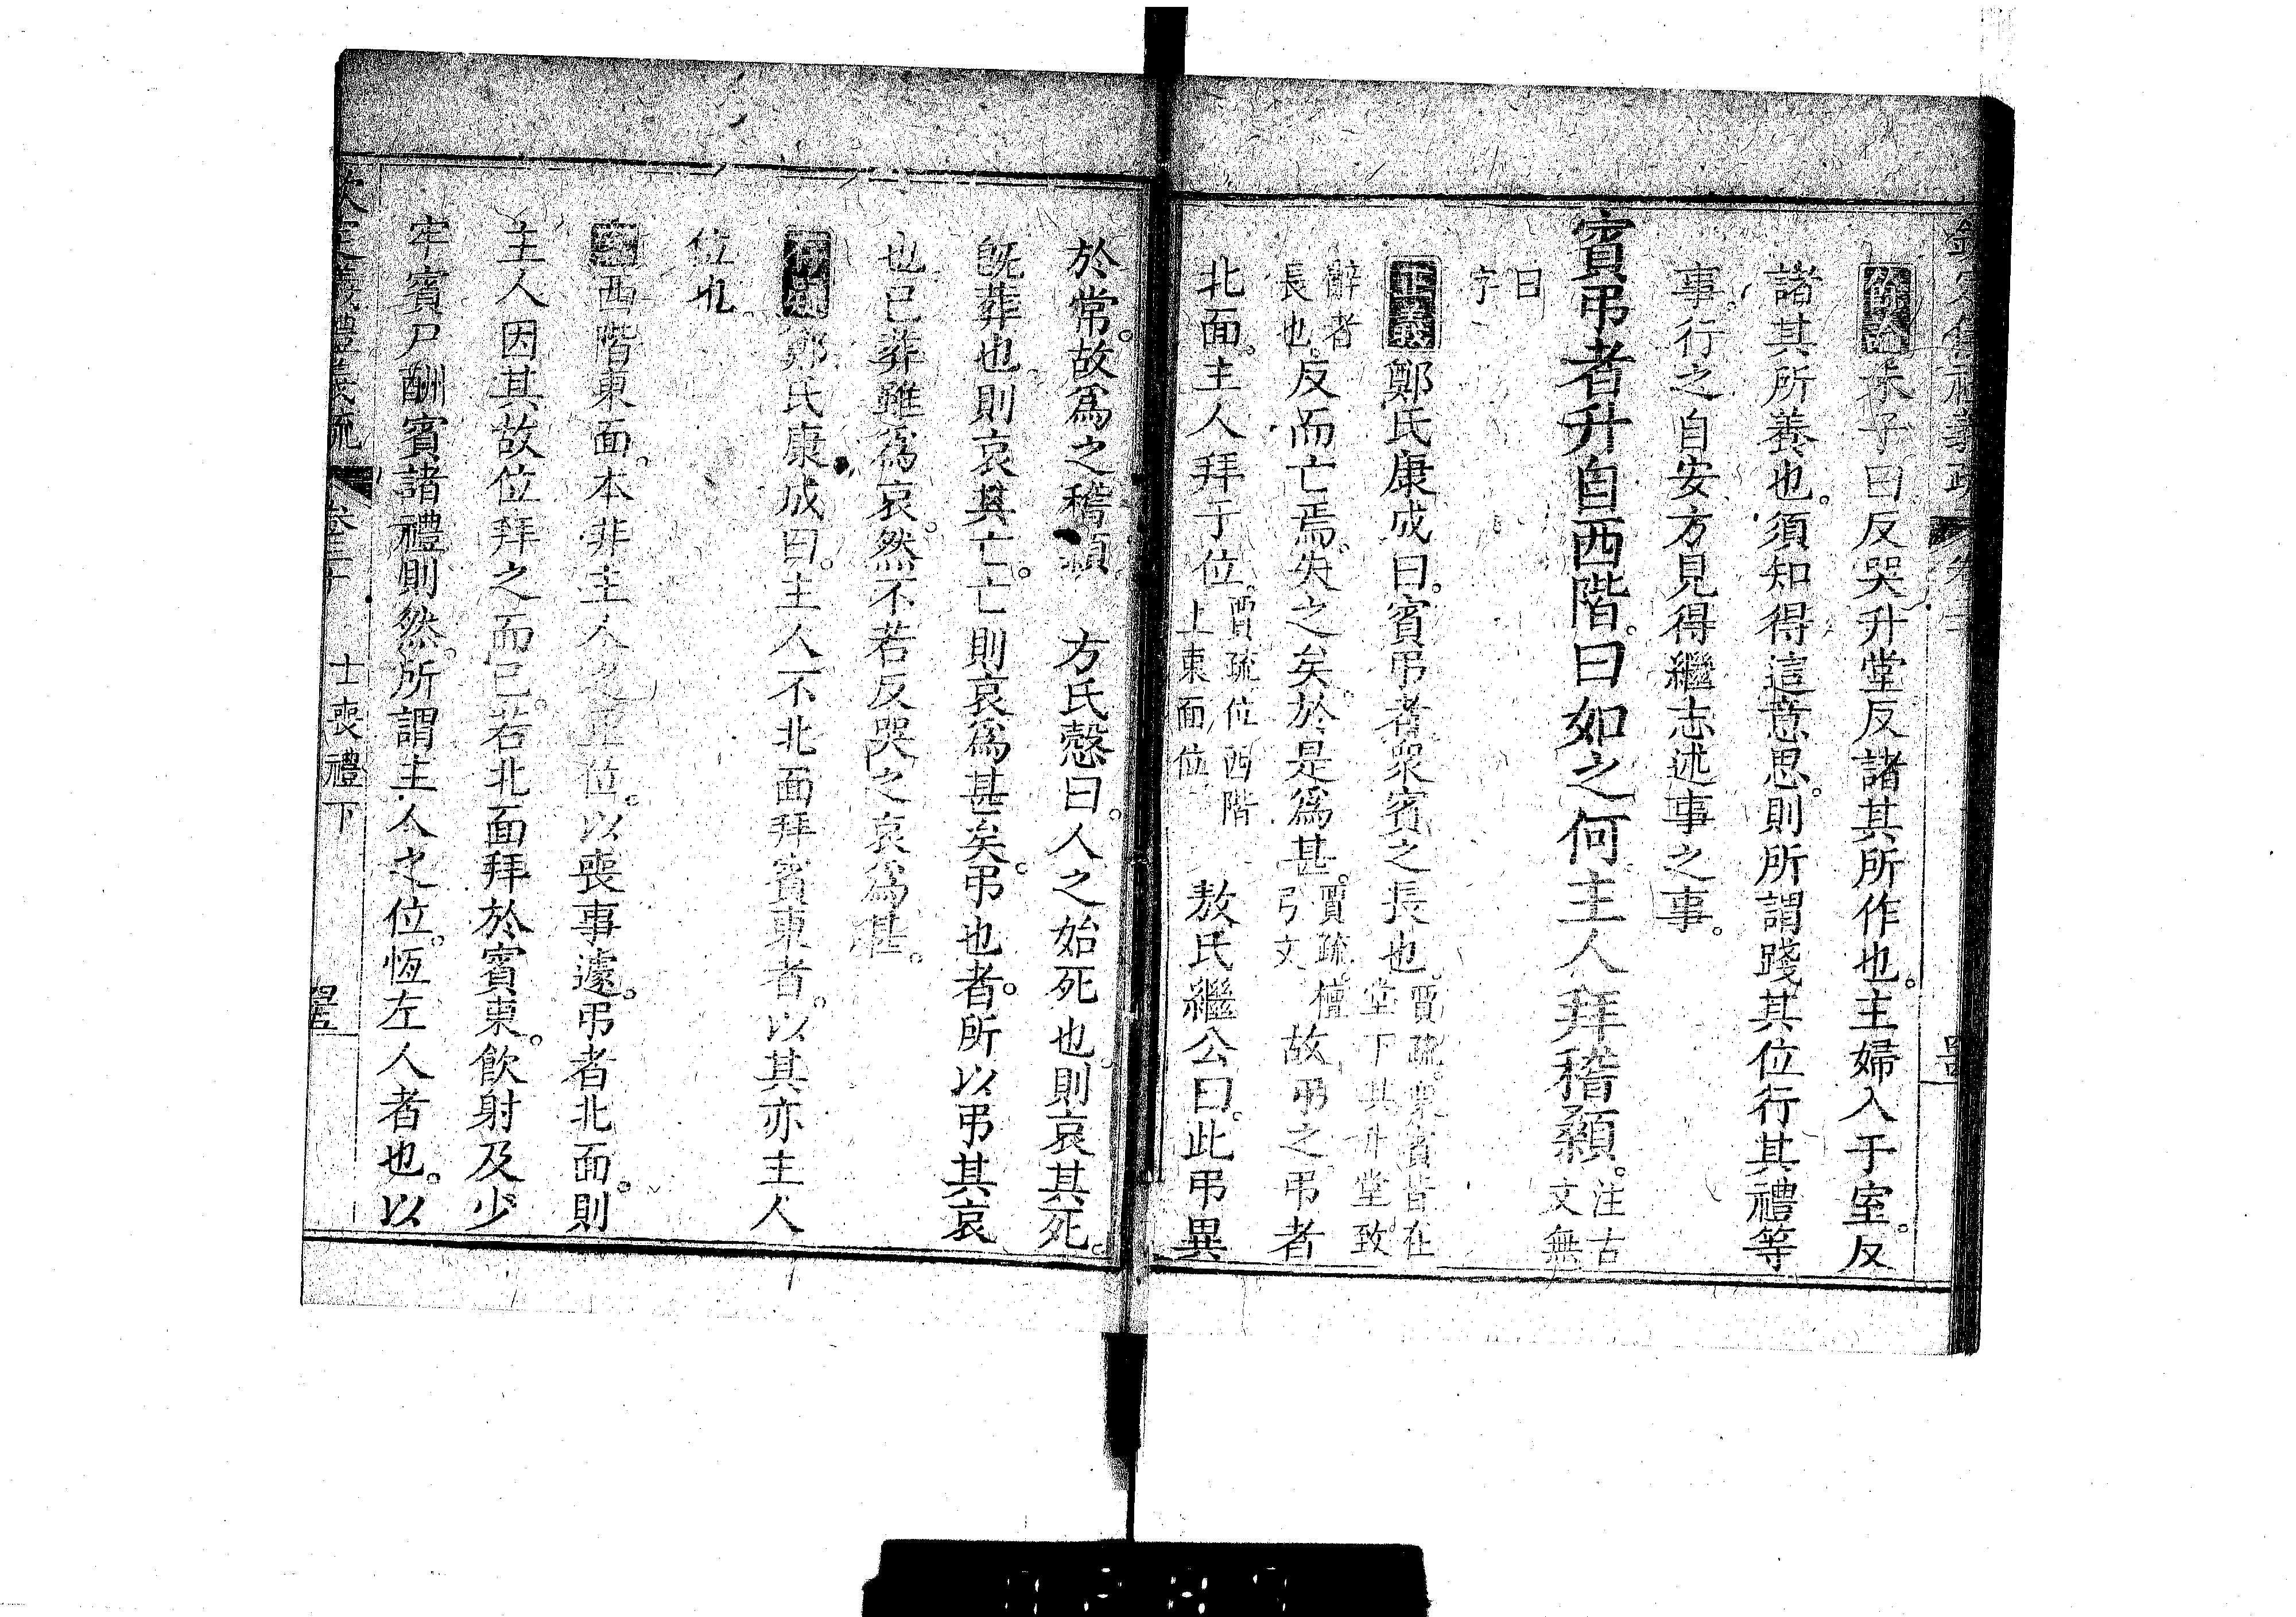 餘論朱子曰反哭升堂反諸其所作也主婦入于室反
諸其所養也須知得這意思則所謂踐其位行其禮等
事行之自安方見得繼志述事之事
賓弔者升自西階曰如之何主人拜稽顙注古文無
曰字
正義鄭氏康成曰賓弔者衆賓之長也賈疏衆賓皆在堂下其升堂致
辭者長也反而亡焉失之矣於是爲甚賈疏檀弓文故弔之弔者
北面主人拜于位賈疏位西階上東面位敖氏繼公曰此弔異
於常故爲之稽顙 方氏慤曰人之始死也則哀其死
旣葬也則哀其亡亡則哀爲甚矣弔也者所以弔其哀
也已葬雖爲哀然不若反哭之哀爲甚
鄭氏康成曰主人不北面拜賓東者以其亦主人
位也
案西階東面本非主人之正位以喪事遽弔者北面則
主人因其故位拜之而已若北面拜於賓東飮射及少
牢賓尸酬賓諸禮則然所謂主人之位恆左人者也以
欽定儀禮義疏 卷三十 士喪禮下